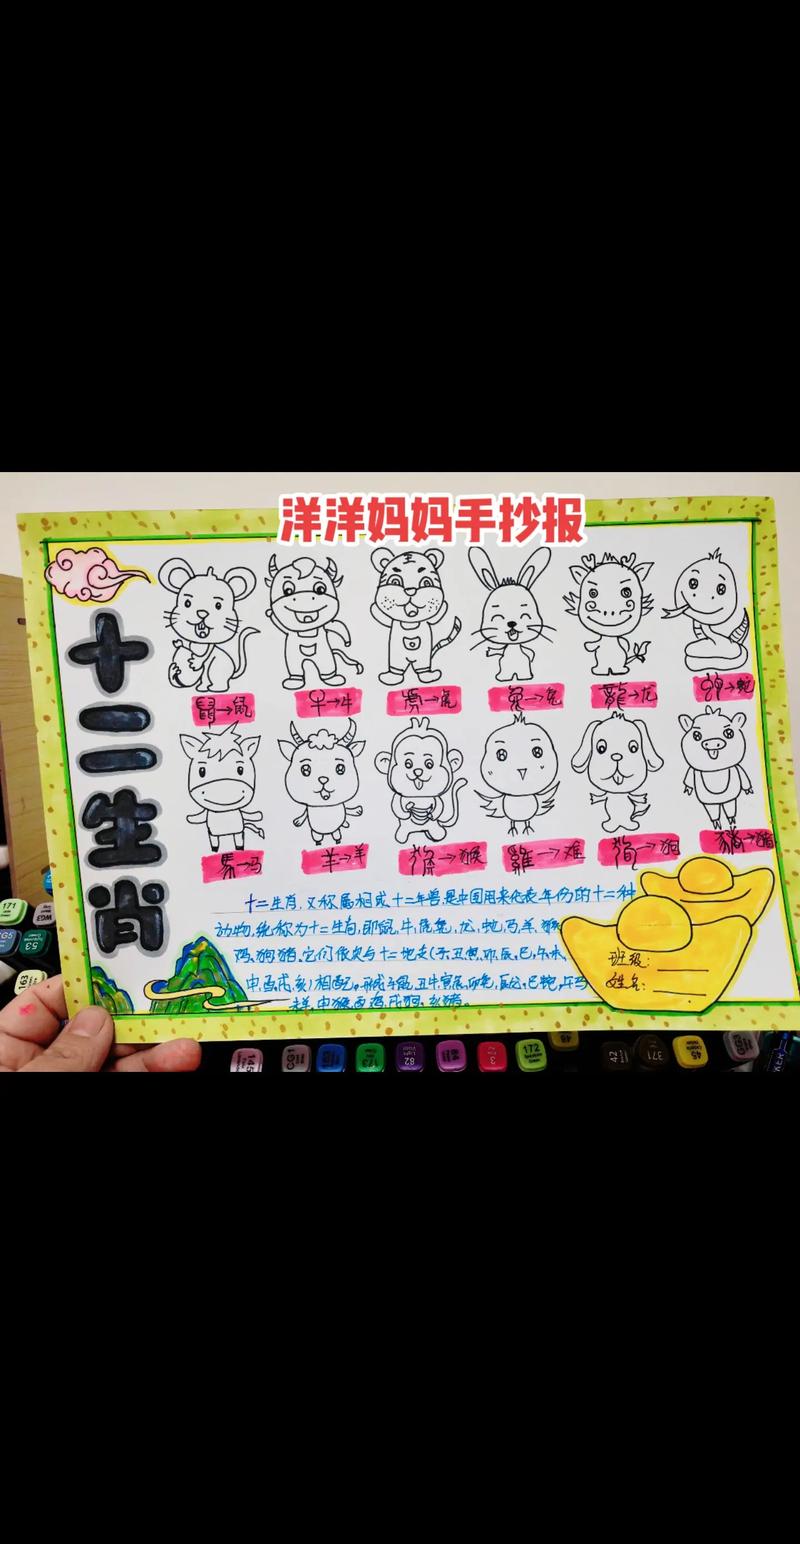 洋洋妈妈手抄报
十二生肖
鼠→鼠
牛→牛
虎→虎
兔→兔
龍→龙
蛇→蛇
馬→马
羊→羊
猴→猴
雞→难
狗→狗
豬→猪
十二生肖,又称属相或十二年兽,是中国用来代表年份的十二种
动物,统称为十二生肖,即鼠,牛,虎兔,龙,蛇马羊,猴
鸡,狗猪,它们依次与十二地支(子,丑寅,卯,辰,巳,午未,
申,酉戌,亥)相配,形成子鼠,丑牛寅虎,卯兔,辰龙,巳蛇,午马
未羊,申猴酉鸡戌狗,亥猪。
班级:
姓名:
171
WG3
53
163
CG5
145
CG1
173
82
3
172
48
42
371
45
CG3